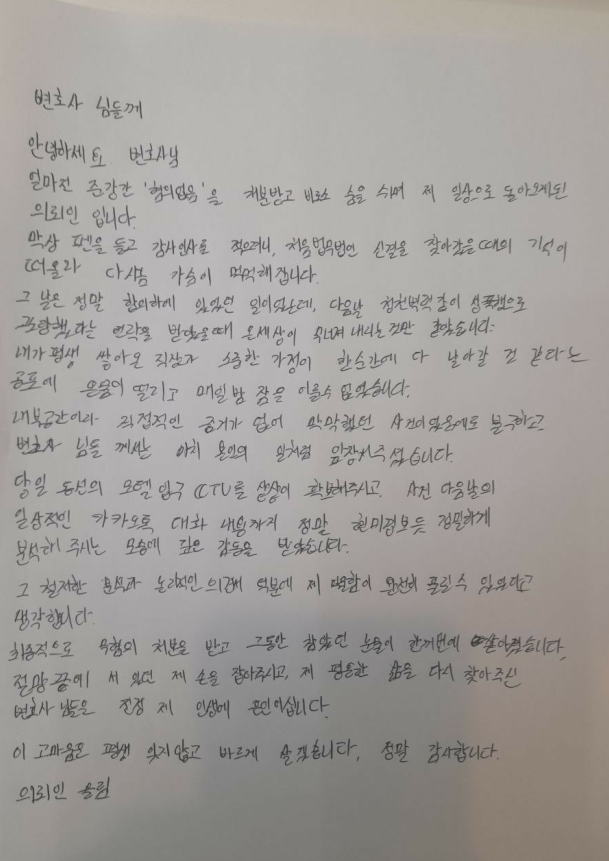 변호사 님들께
안녕하세요 변호사님
얼마전 준강간 '혐의없음'을 처분받고 비로소 숨을 쉬며 제 일상으로 돌아오게된
의뢰인 입니다.
막상 펜을 들고 감사인사를 적으려니, 처음법무법인 신결을 찾아갔을때의 기억이
떠올라 다시금 가슴이 먹먹해집니다.
그 날은 정말 합의하에 있었던 일이었는데, 다음날 청천벽력 같이 성폭행으로
고소하겠다는 연락을 받았을때 온세상이 무너져 내리는것만 같았습니다.
내가평생 쌓아온 직장과 소중한 가정이 한순간에 다 날아갈 것 같다는
공포에 온몸이 떨리고 매일밤 잠을 이룰수 없었습니다.
내부공간이라 직접적인 증거가 없어 막막했던 사건이었음에도 불구하고
변호사 님들 께서는 마치 본인의 일처럼 앞장서주셨습니다.
당일 동선의 모텔 입구 CCTV를 샅샅이 확보해주시고, 사건 다음날의
일상적인 카카오톡 대화 내용까지 정말 현미경보듯 정밀하게
분석해 주시는 모습에 깊은 감동을 받았습니다.
그 철저한 분석과 논리적인 의견서 덕분에 제 억울함이 완전히 풀릴수 있었다고
생각합니다.
최종적으로 무혐의 처분을 받고 그동안 참았던 눈물이 한꺼번에 쏟아졌습니다.
절망 끝에 서 있던 제 손을 잡아주시고, 제 평온한 삶을 다시 찾아주신
변호사님들은 진정 제 인생에 은인이십니다.
이 고마움은 평생 잊지않고 바르게 살겠습니다, 정말 감사합니다.
의뢰인 올림